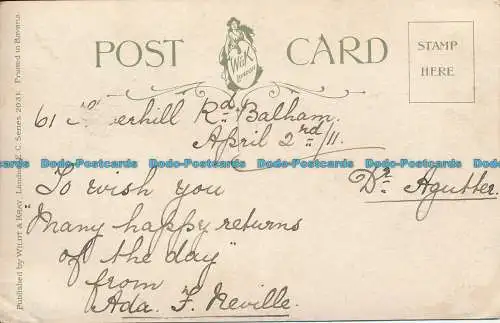 POST CARD
W&K
LONDON
STAMP
HERE
Published by WILDT & KRAY, London, E.C. Series 2031. Printed in Bavaria.
61 Rd. Balham.
April 2nd/11.
Dodo-Postcards Dodo-Postcards Dodo-Postcards Dodo-Postcards
To wish you
"Many happy returns
of the day"
from
Ada. F. Neville.
Dr. Agutter.